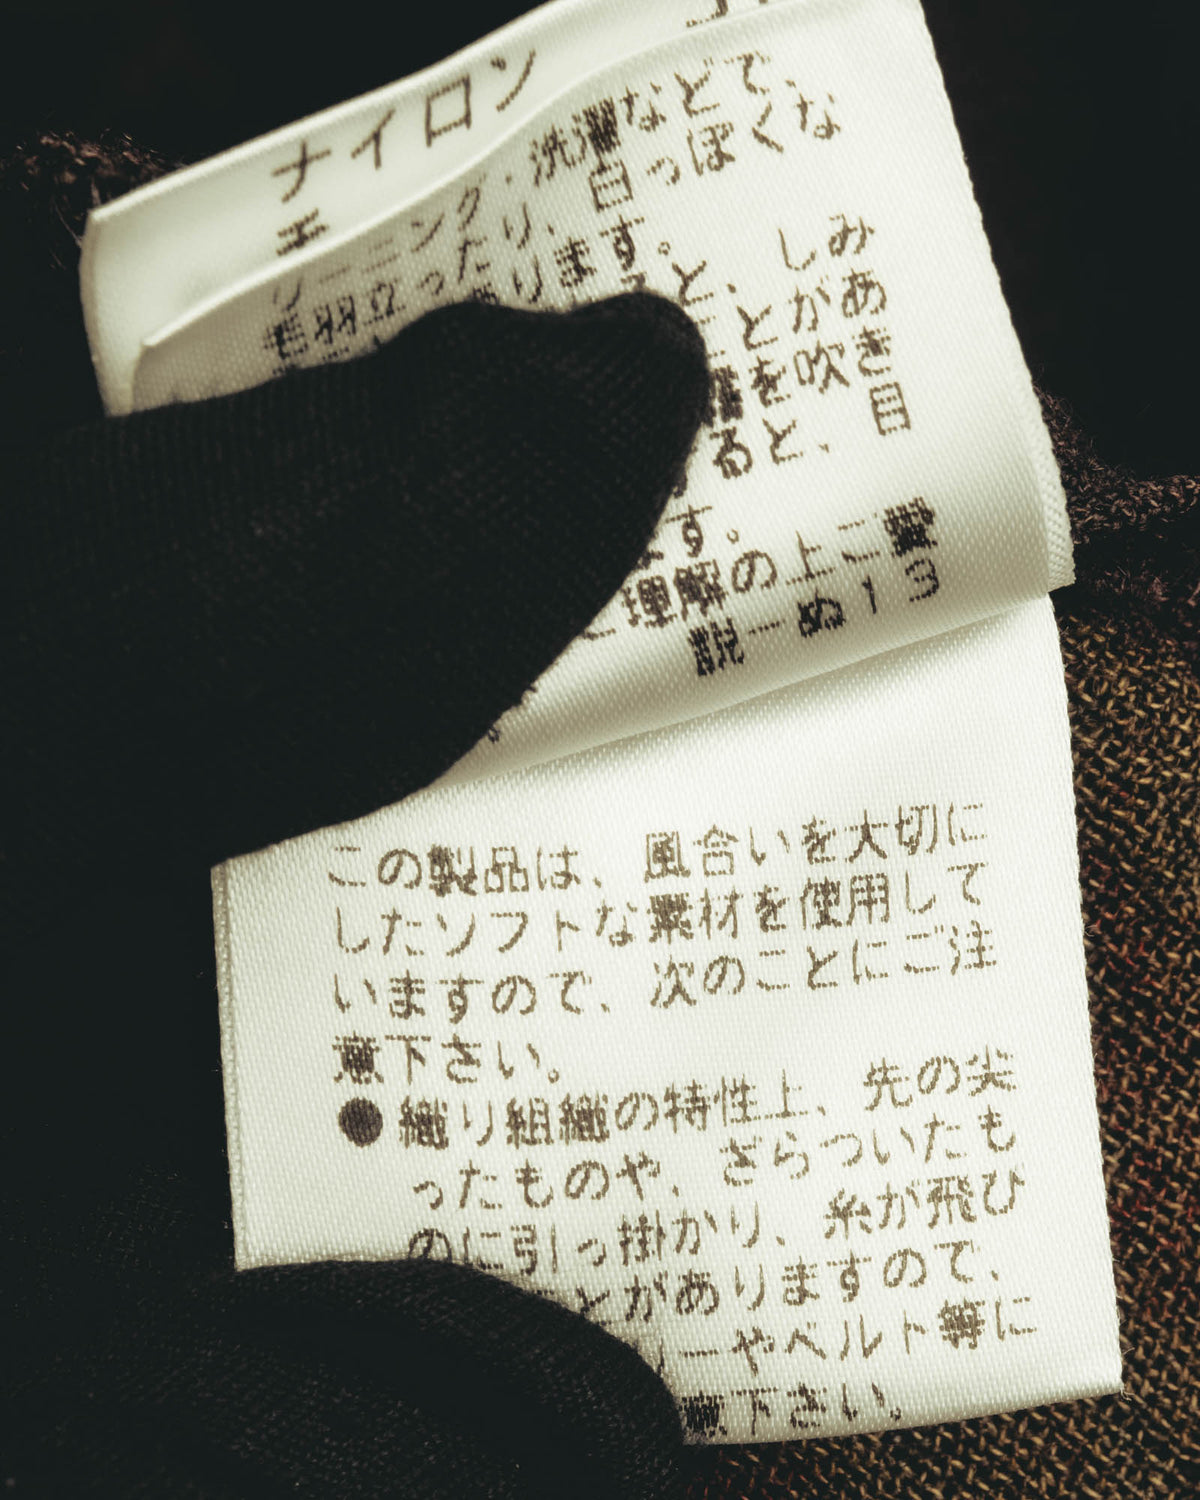 ナイロン
リーニング・洗濯などで、
毛羽立ったり、白っぽくな
あります。
と、しみ
とがあ
を吹き
ると、目
ます。
ご理解の上ご愛
説ーぬ13
この製品は、風合いを大切に
したソフトな素材を使用して
いますので、次のことにご注
意下さい。
●織り組織の特性上、先の尖
ったものや、ざらついたも
のに引っ掛かり、糸が飛び
とがありますので、
リーやベルト等に
意下さい。